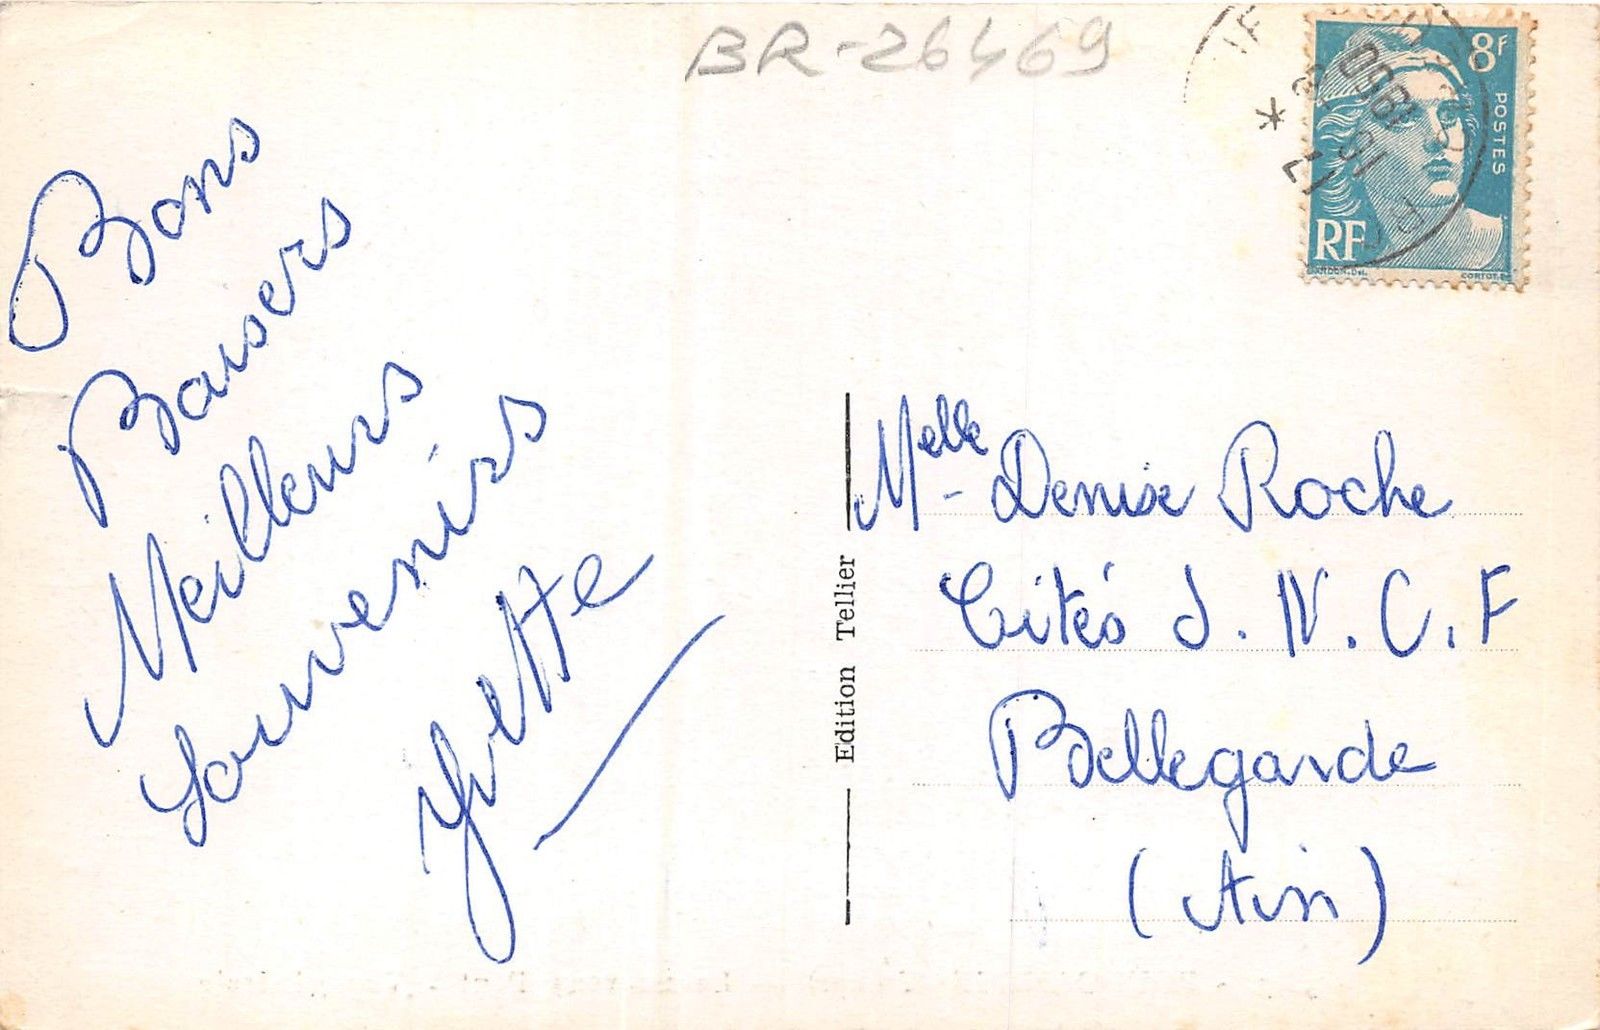 BR-26469
Bons
Baisers
Meilleurs
Souvenirs
Yvette
Edition Tellier
Melle Denise Roche
Cités S.N.C.F
Bellegarde
(Ain)
8F
POSTES
RF
CORTOT
1950